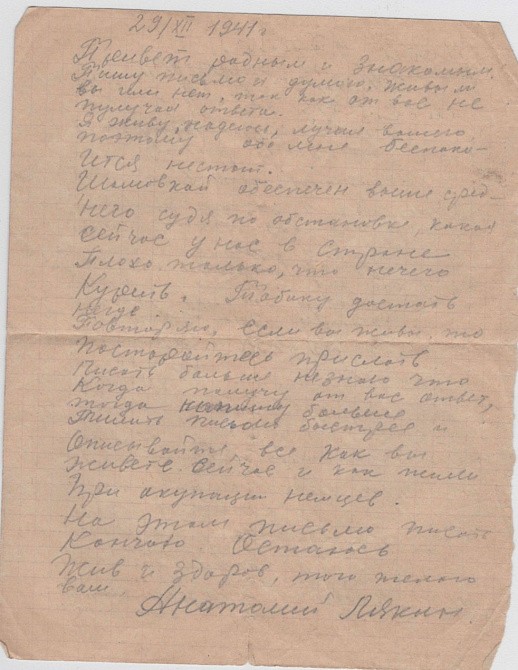 29/XII 1941г
Привет родным и знакомым.
Пишу письмо и думаю, живы ли
вы или нет, так как от вас не
получая ответа.
Я живу, надеюсь, лучше вашего
поэтому обо мне беспоко-
ится нестоит.
обеспечен выше сред-
него судя по обстановке, какая
сейчас у нас в стране
Плохо только, что нечего
Курить. Табаку достать
негде.
Повторяю, если вы живы, то
постарайтесь прислать
Писать больше незнаю что
Когда получу от вас ответ,
тогда напишу больше
Пишите письмо быстрее и
Описывайте все как вы
живете сейчас и как жили
При окупации немцев.
На этом письмо писать
Кончаю. Остаюсь
Жив и здоров, того желаю
вам.
Анатолий Лякин.